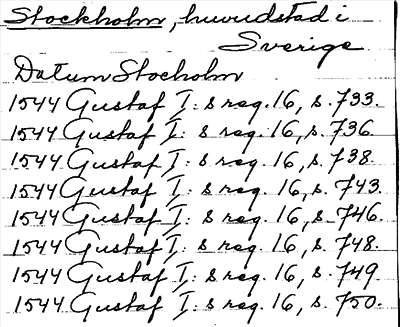 Stockholm, huvudstad i
Sverige
Datum Stocholm
1544 Gustaf I: s reg. 16, s. 733.
1544 Gustaf I: s reg. 16, s. 736.
1544 Gustaf I: s reg. 16, s. 738.
1544 Gustaf I: s reg. 16, s. 743.
1544 Gustaf I: s reg. 16, s. 746.
1544 Gustaf I: s reg. 16, s. 748.
1544 Gustaf I: s reg. 16, s. 749.
1544 Gustaf I: s reg. 16, s. 750.